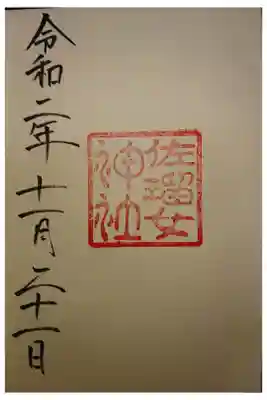 佐瑠女
神社
令和二年十一月二十一日